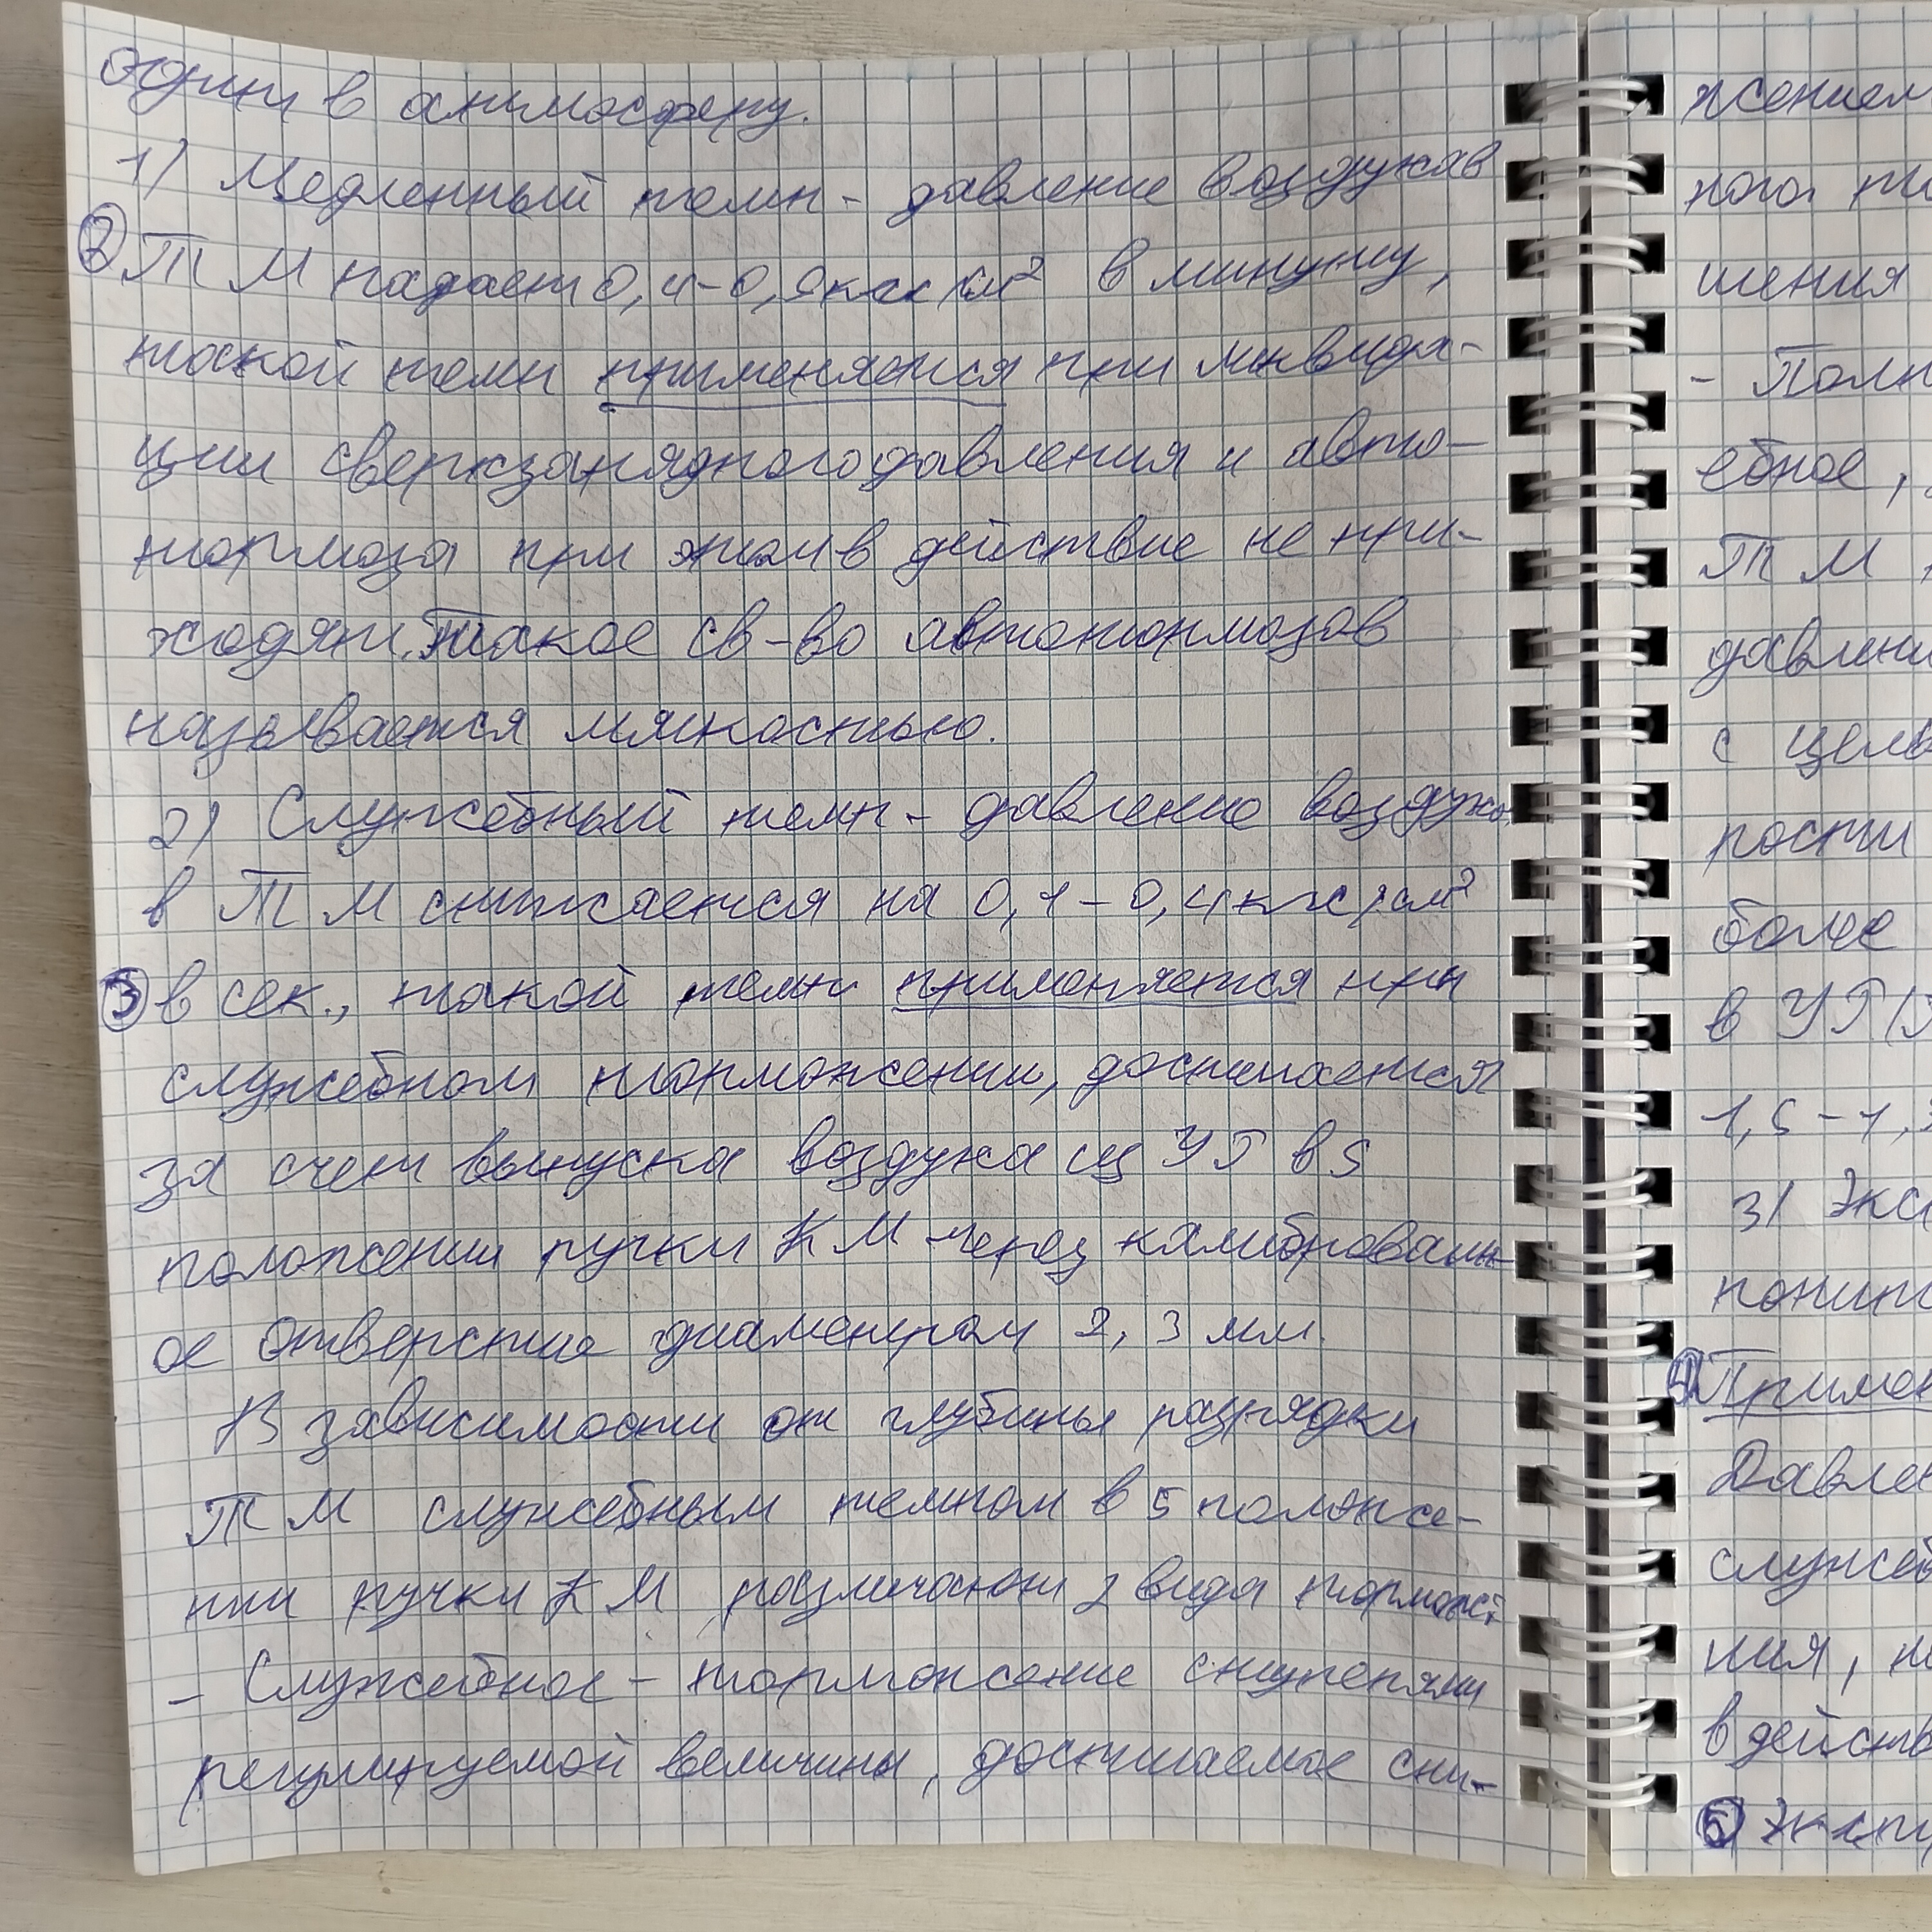 один в атмосферу.
1) Медленный темп - давление воздуха в
② ТМ падает 0,4-0,9 кгс/см² в минуту,
такой темп применяется при ликвида-
ции сверхзарядного давления и авто-
тормоза при этом в действие не при-
ходят. Такое св-во автотормозов
называется мягкостью.
2) Служебный темп - давление воздуха
в ТМ снижается на 0,1-0,4 кгс/см²
③ в сек., такой темп применяется при
служебном торможении, достигается
за счет выпуска воздуха из УР в 5
положении ручки КМ через калиброванн-
ое отверстие диаметром 2,3 мм.
В зависимости от глубины разрядки
ТМ служебным темпом в 5 положе-
нии ручки КМ различают 2 вида тормож.:
- Служебное - торможение ступенями
регулируемой величины, достигаемое сни-
жением
ного
шения
- Полн
ебное,
ТМ
давлени
с цель
рости
более
в УР (
1,5-1,
3) Экс
пониж
④ Примен
Давле
служеб
ния,
в действ
⑤ Эксп